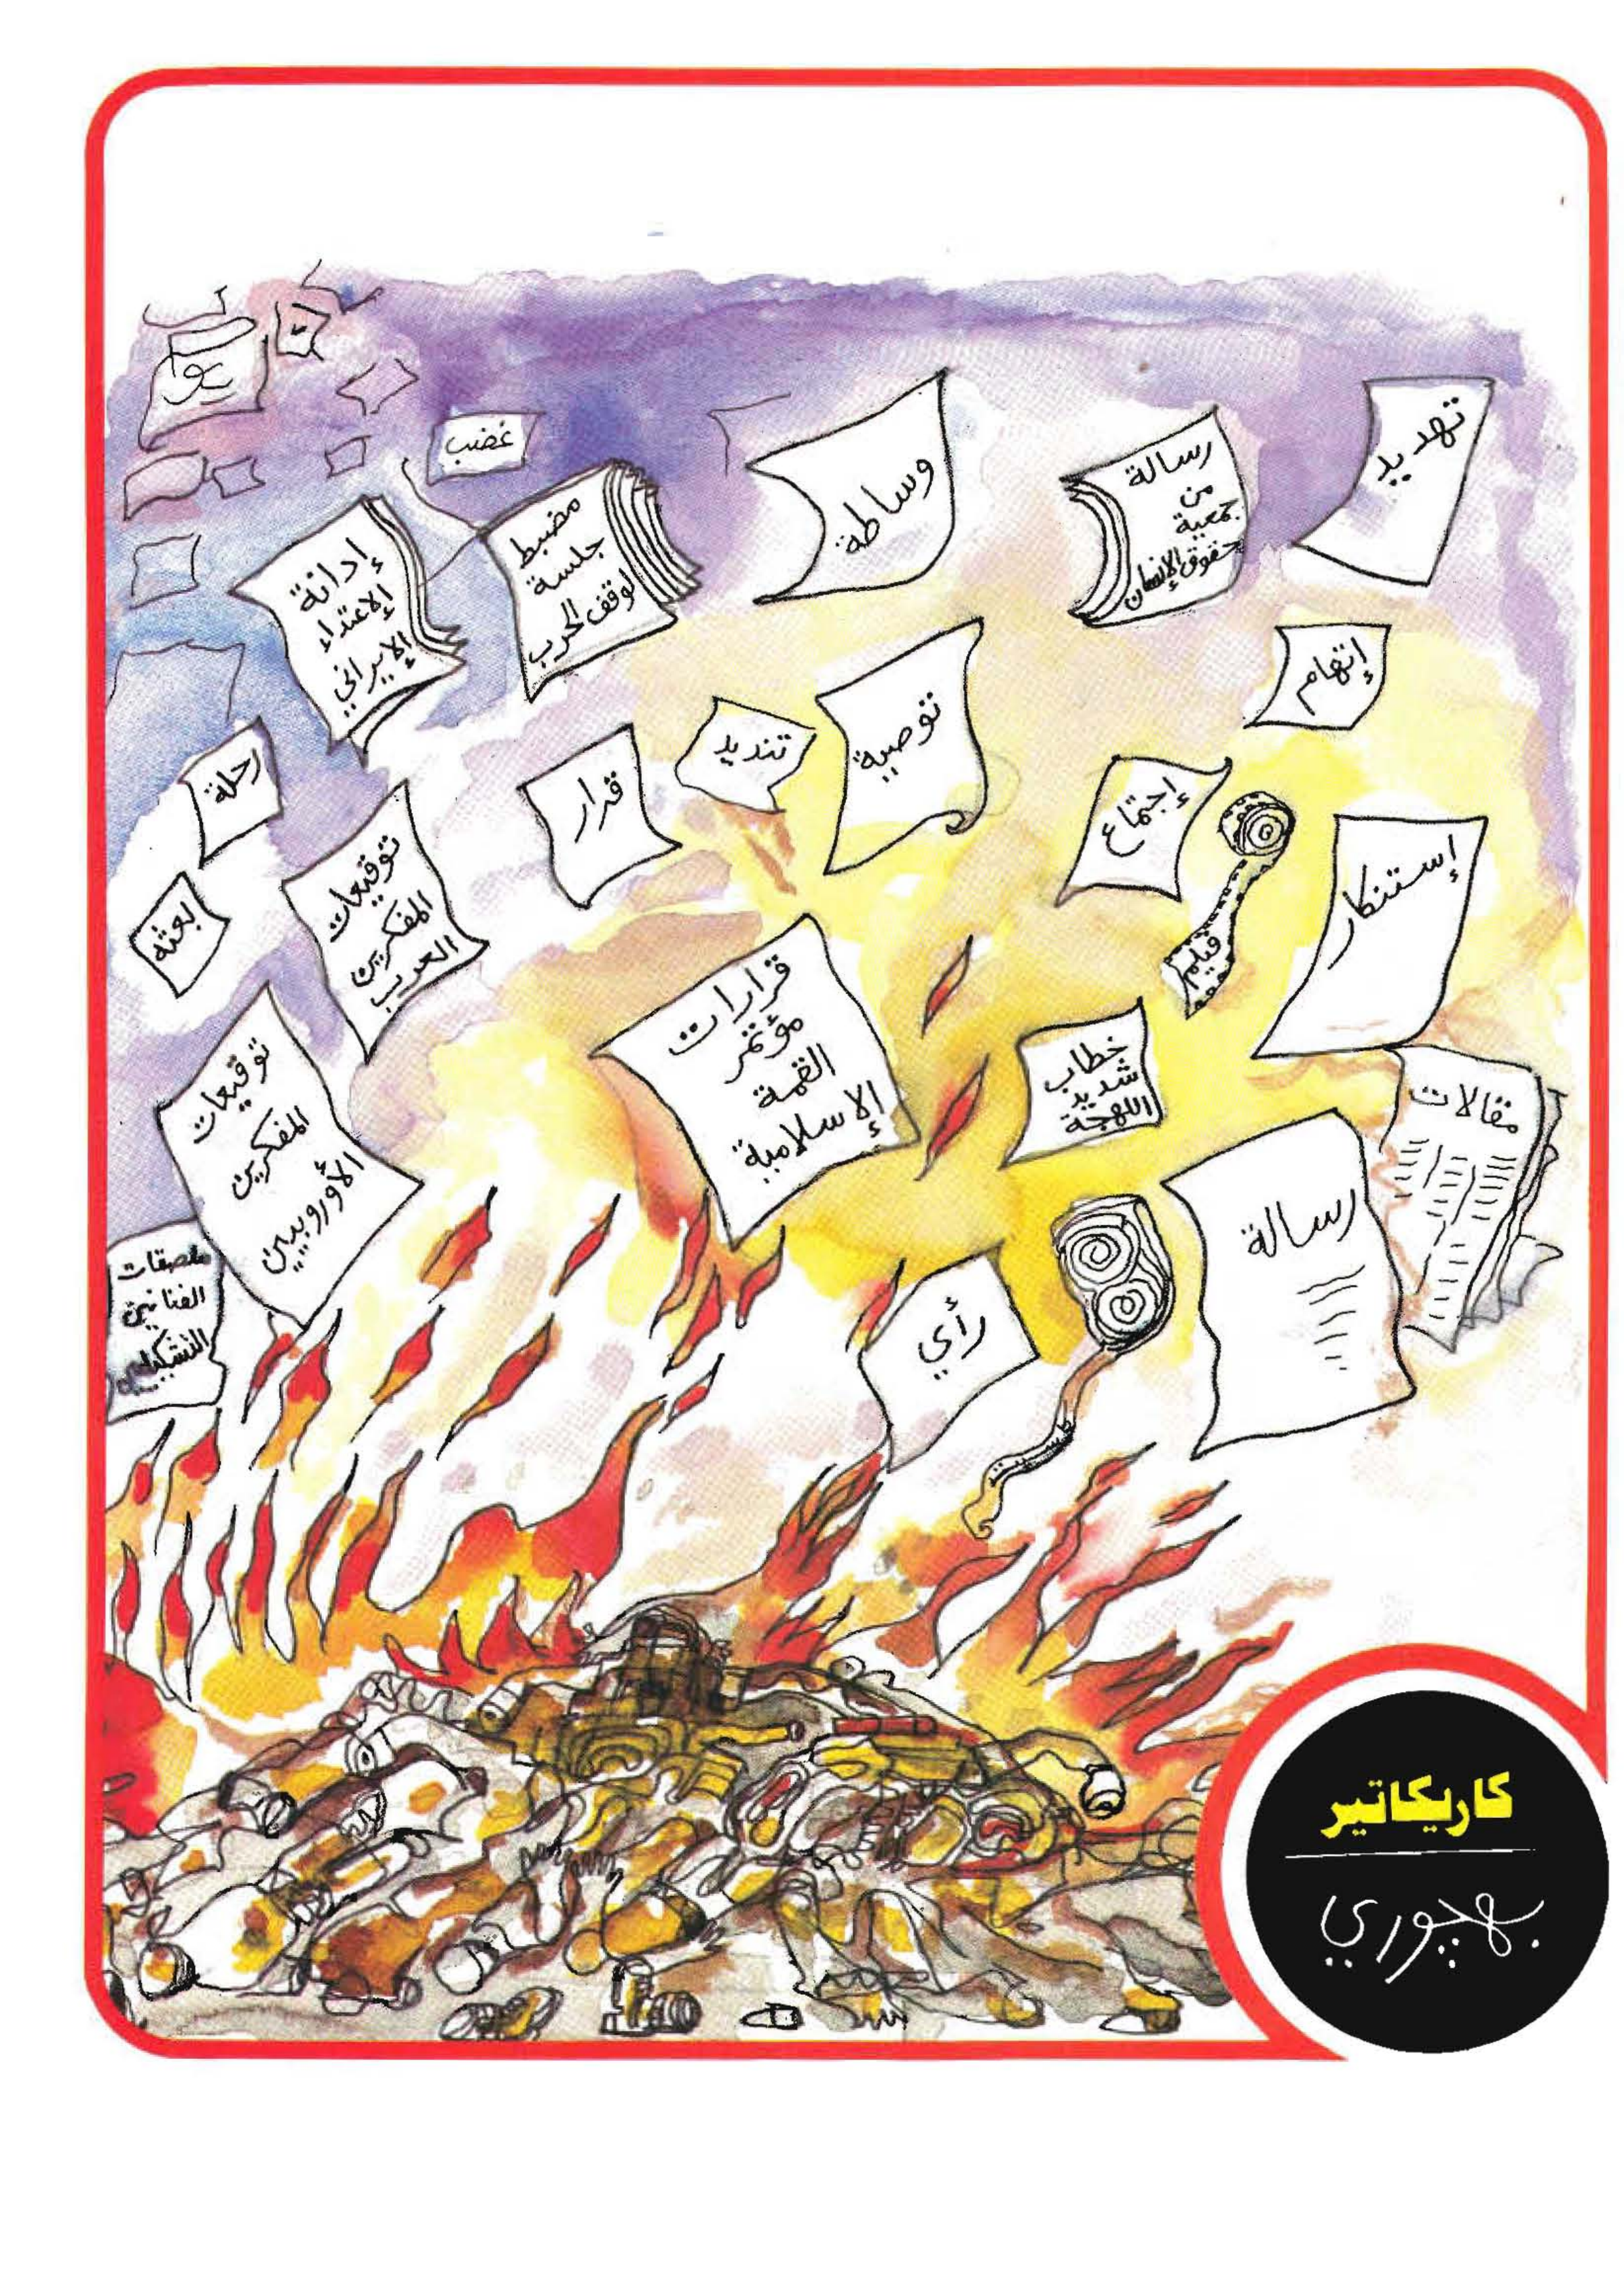 تهديد
رسالة
من
جمعية
حقوق الإنسان
وساطة
غضب
مضبط
جلسة
لوقف الحرب
إدانة
الإعتداء
الإيراني
إتهام
توصية
تنديد
قرار
رحلة
إجتماع
فيلم
إستنكار
توقيعات
المفكرين
العرب
بعثه
قرارات
مؤتمر
القمة
الإسلامية
خطاب
شديد
اللهجة
مقالات
رسالة
توقيعات
المفكرين
الأوروبيين
ملصقات
الفنانين
رأي
كاريكاتير
بهچوري